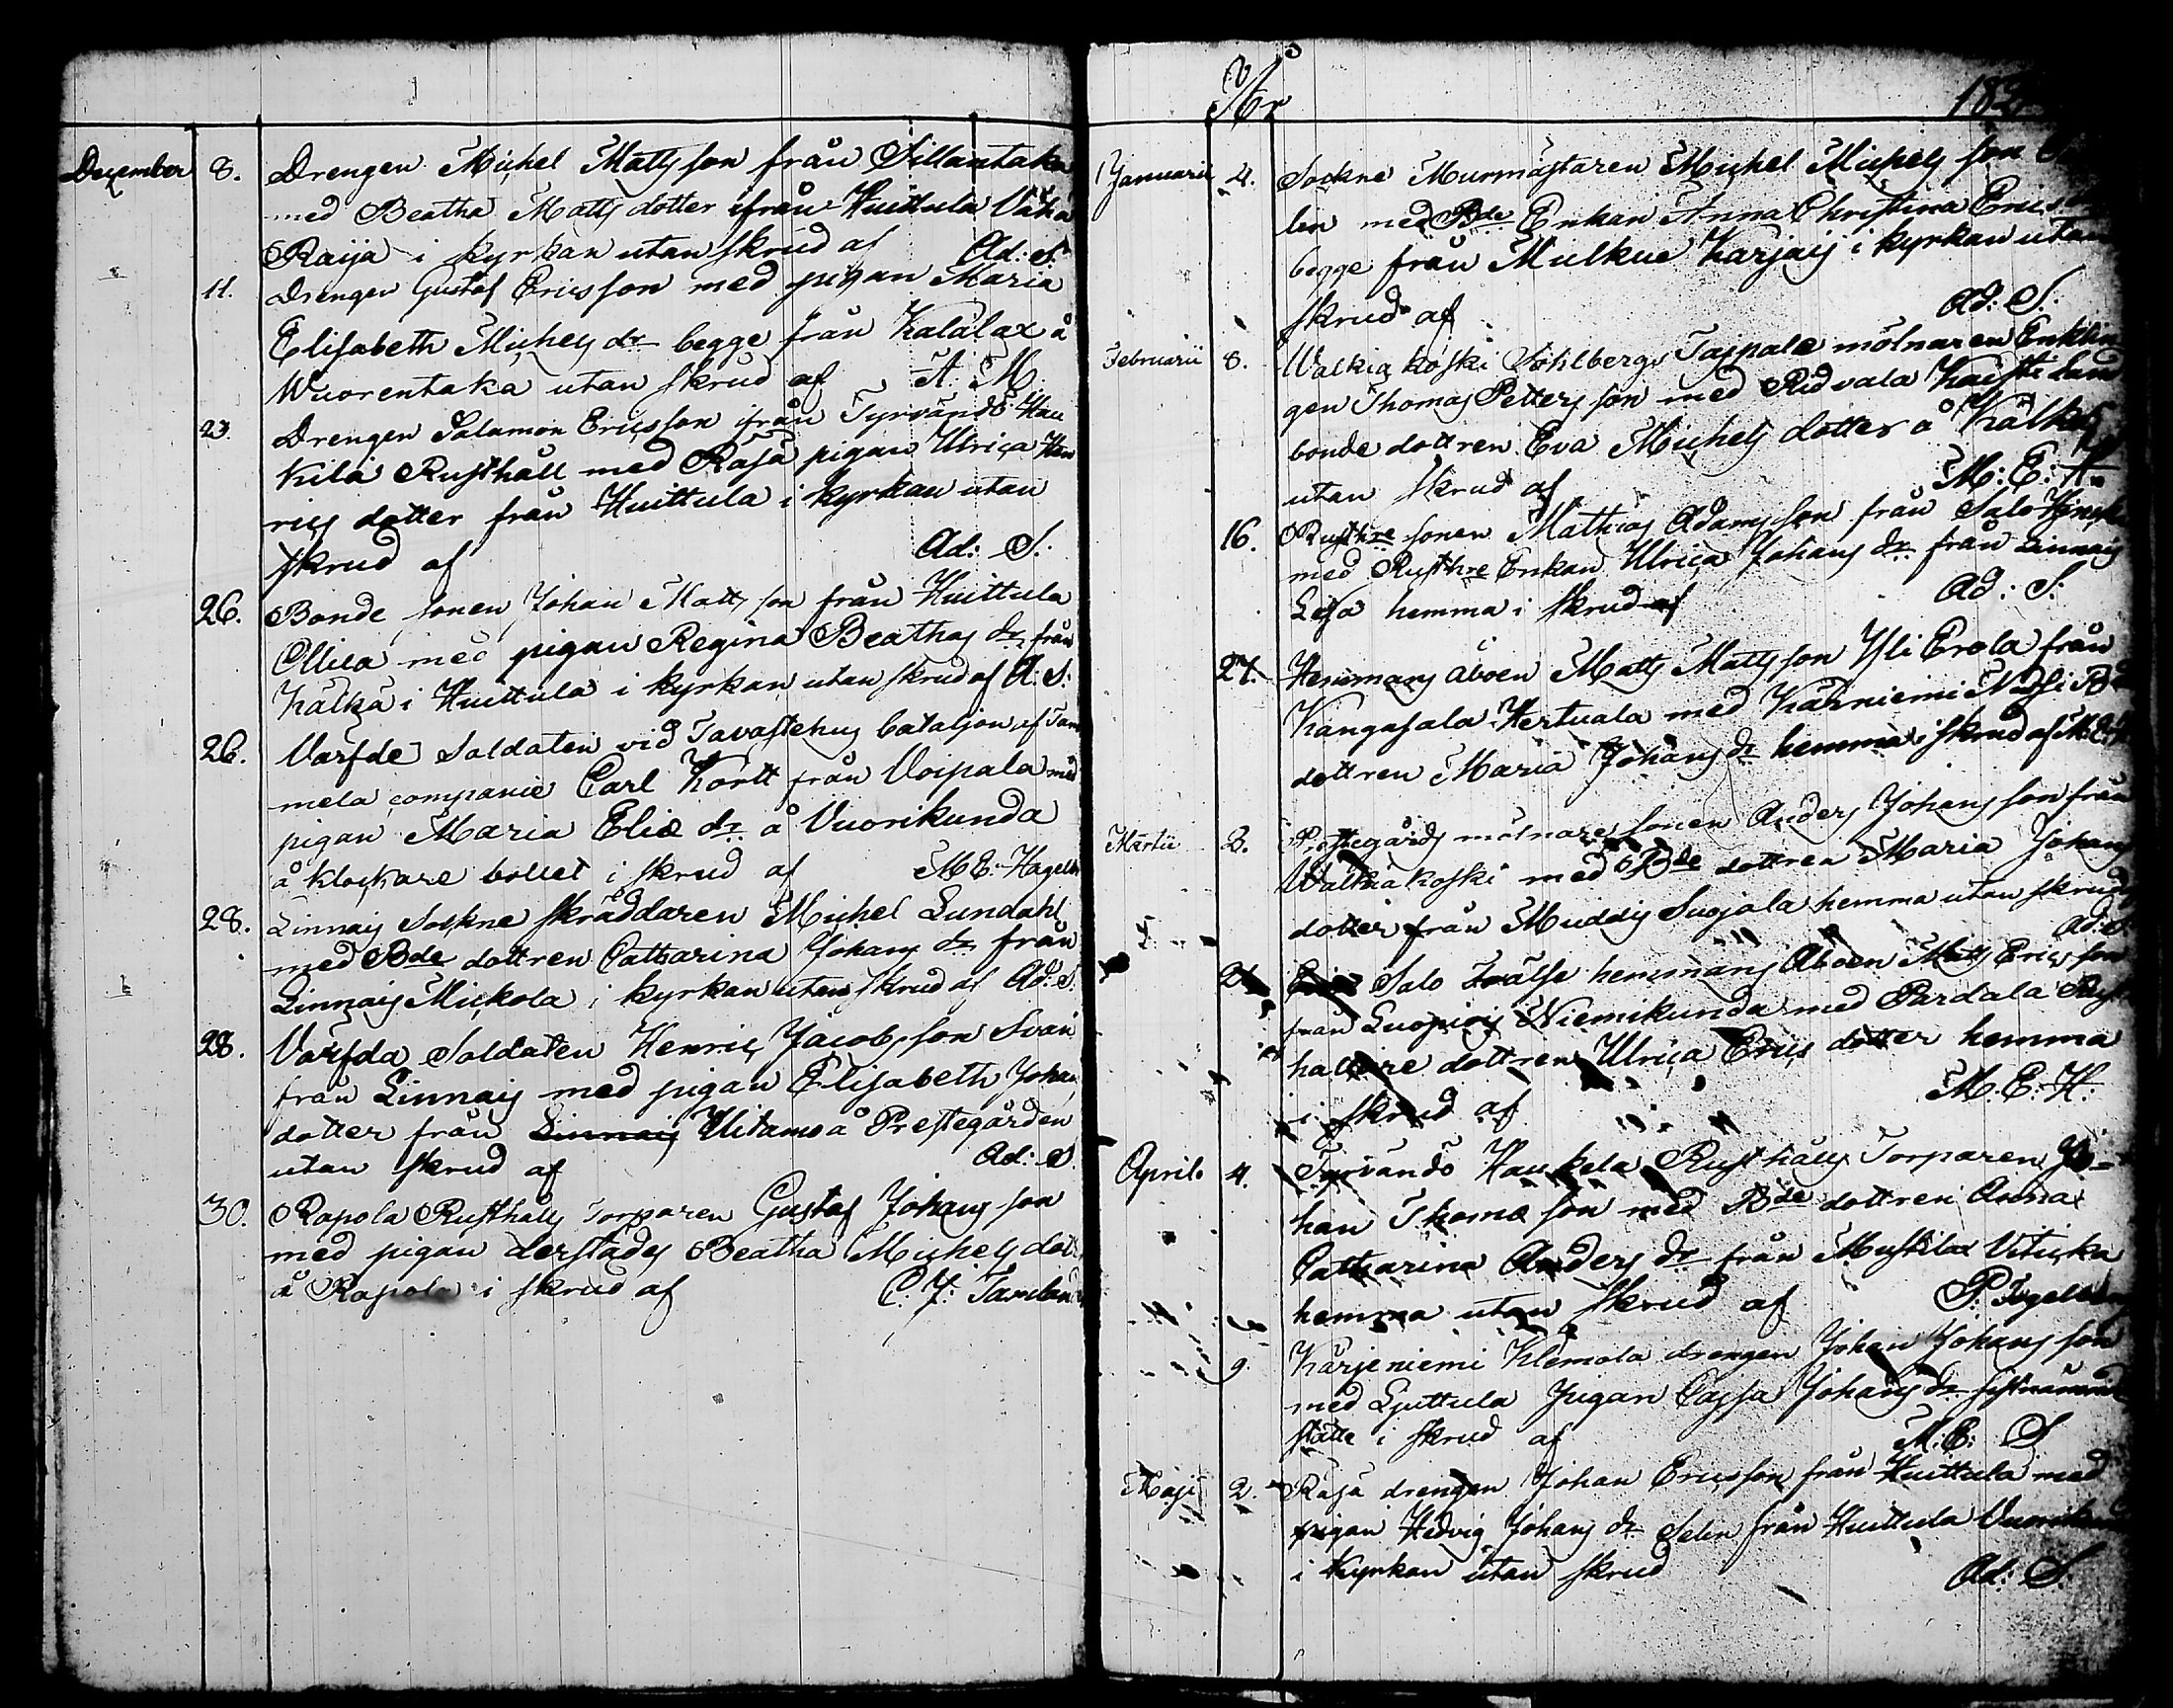 December 8. Drengen Michel Mattsson från Sillantaka
med Beatha Matts dotter ifrån Huittula Vähä
Raija i kyrkan utan skrud af Ad: S.
11. Drengen Gustaf Ericsson med pigan Maria
Elisabeth Michels dr begge från Kalalax å
Wuorentaka utan skrud af A. M.
23. Drengen Salamon Ericsson ifrån Tyrvändö Hau
kila Rusthåll med Rasa pigan Ulrica Hen
rics dotter från Huittula i kyrkan utan
skrud af Ad: S.
26. Bonde sonen Johan Matts son från Huittula
Ollila med pigan Regina Beathas dr från
Kälkä i Huittula i kyrkan utan skrud af A. S.
26. Varfde Soldaten vid Tavastehus bataljon af Tam
mela companie Carl Kortt från Voipala med
pigan Maria Eliæ dr å Vuorikunda
å klockare bollet i skrud af M E: Hagelb
28. Linnais Sockne skräddaren Michel Lundahl
med Bde dottren Catharina Johans dr från
Linnais Mickola i kyrkan utan skrud af Ad: S.
28. Varfda Soldaten Henric Jacobsson Svan
från Linnais med pigan Elisabeth Johans
dotter från Linnais Uitamo å Prestegården
utan skrud af Ad: S.
30. Rapola Rusthålls Torparen Gustaf Johans son
med pigan derstädes Beatha Michels dott
å Rapola i skrud af C. J. Tamlan
V
182
Januarii 4. Sockne Murmästaren Michel Michels son
lin med Bde Enkan Anna Christina Erics
begge från Mulkue Karjais i kyrkan utan
skrud af Ad: S:
Februarii 8. Walkiakoski Sohlbergs Taipale mölnaren Enklin
gen Thomas Petters son med Ridvala Kaisti
bonde dottren Eva Michels dotter å Kälkä
utan skrud af M: E: H
16. Rusthre sonen Mathias Adamsson från Salo
med Rusthre Enkan Ulrica Johans dr från Linnais
hemma i skrud af Ad: S:
27. Hemmans åboen Matts Mattsson Yli Erola från
Kangasala Hertuala med Kärniemi
dottren Maria Johans dr hemma i skrud af M: E: H
Martii 3. Prestegårds mölnare sonen Anders Johans son från
Walkiakoski med Bde dottren Maria Johans
dotter från Muddis Suojala hemma utan skrud
Ad: S.
21. Salo Frälse hemmans Åboen Matts Erics son
från Luopiois Niemikunda med Pardala Rust
hållare dottren Ulrica Erics dotter hemma
i skrud af M. E. H.
Aprilis 4. Tyrvändö Haukela Rusthålls Torparen Jo-
han Thomæ son med Bde dottren Anna
Catharina Anders dr från Muskila Viticka
hemma utan skrud af P:
9. Kärjeniemi Klemola drengen Johan Johans son
med Ljuttula Pigan Cajsa Johans dr sistnämnde
ställe i skrud af M. E: S
Maji 2. Rasa drengen Johan Ericsson från Huittula med
pigan Hedvig Johans dr Selin från Huittula
i Kyrkan utan skrud Ad: S.